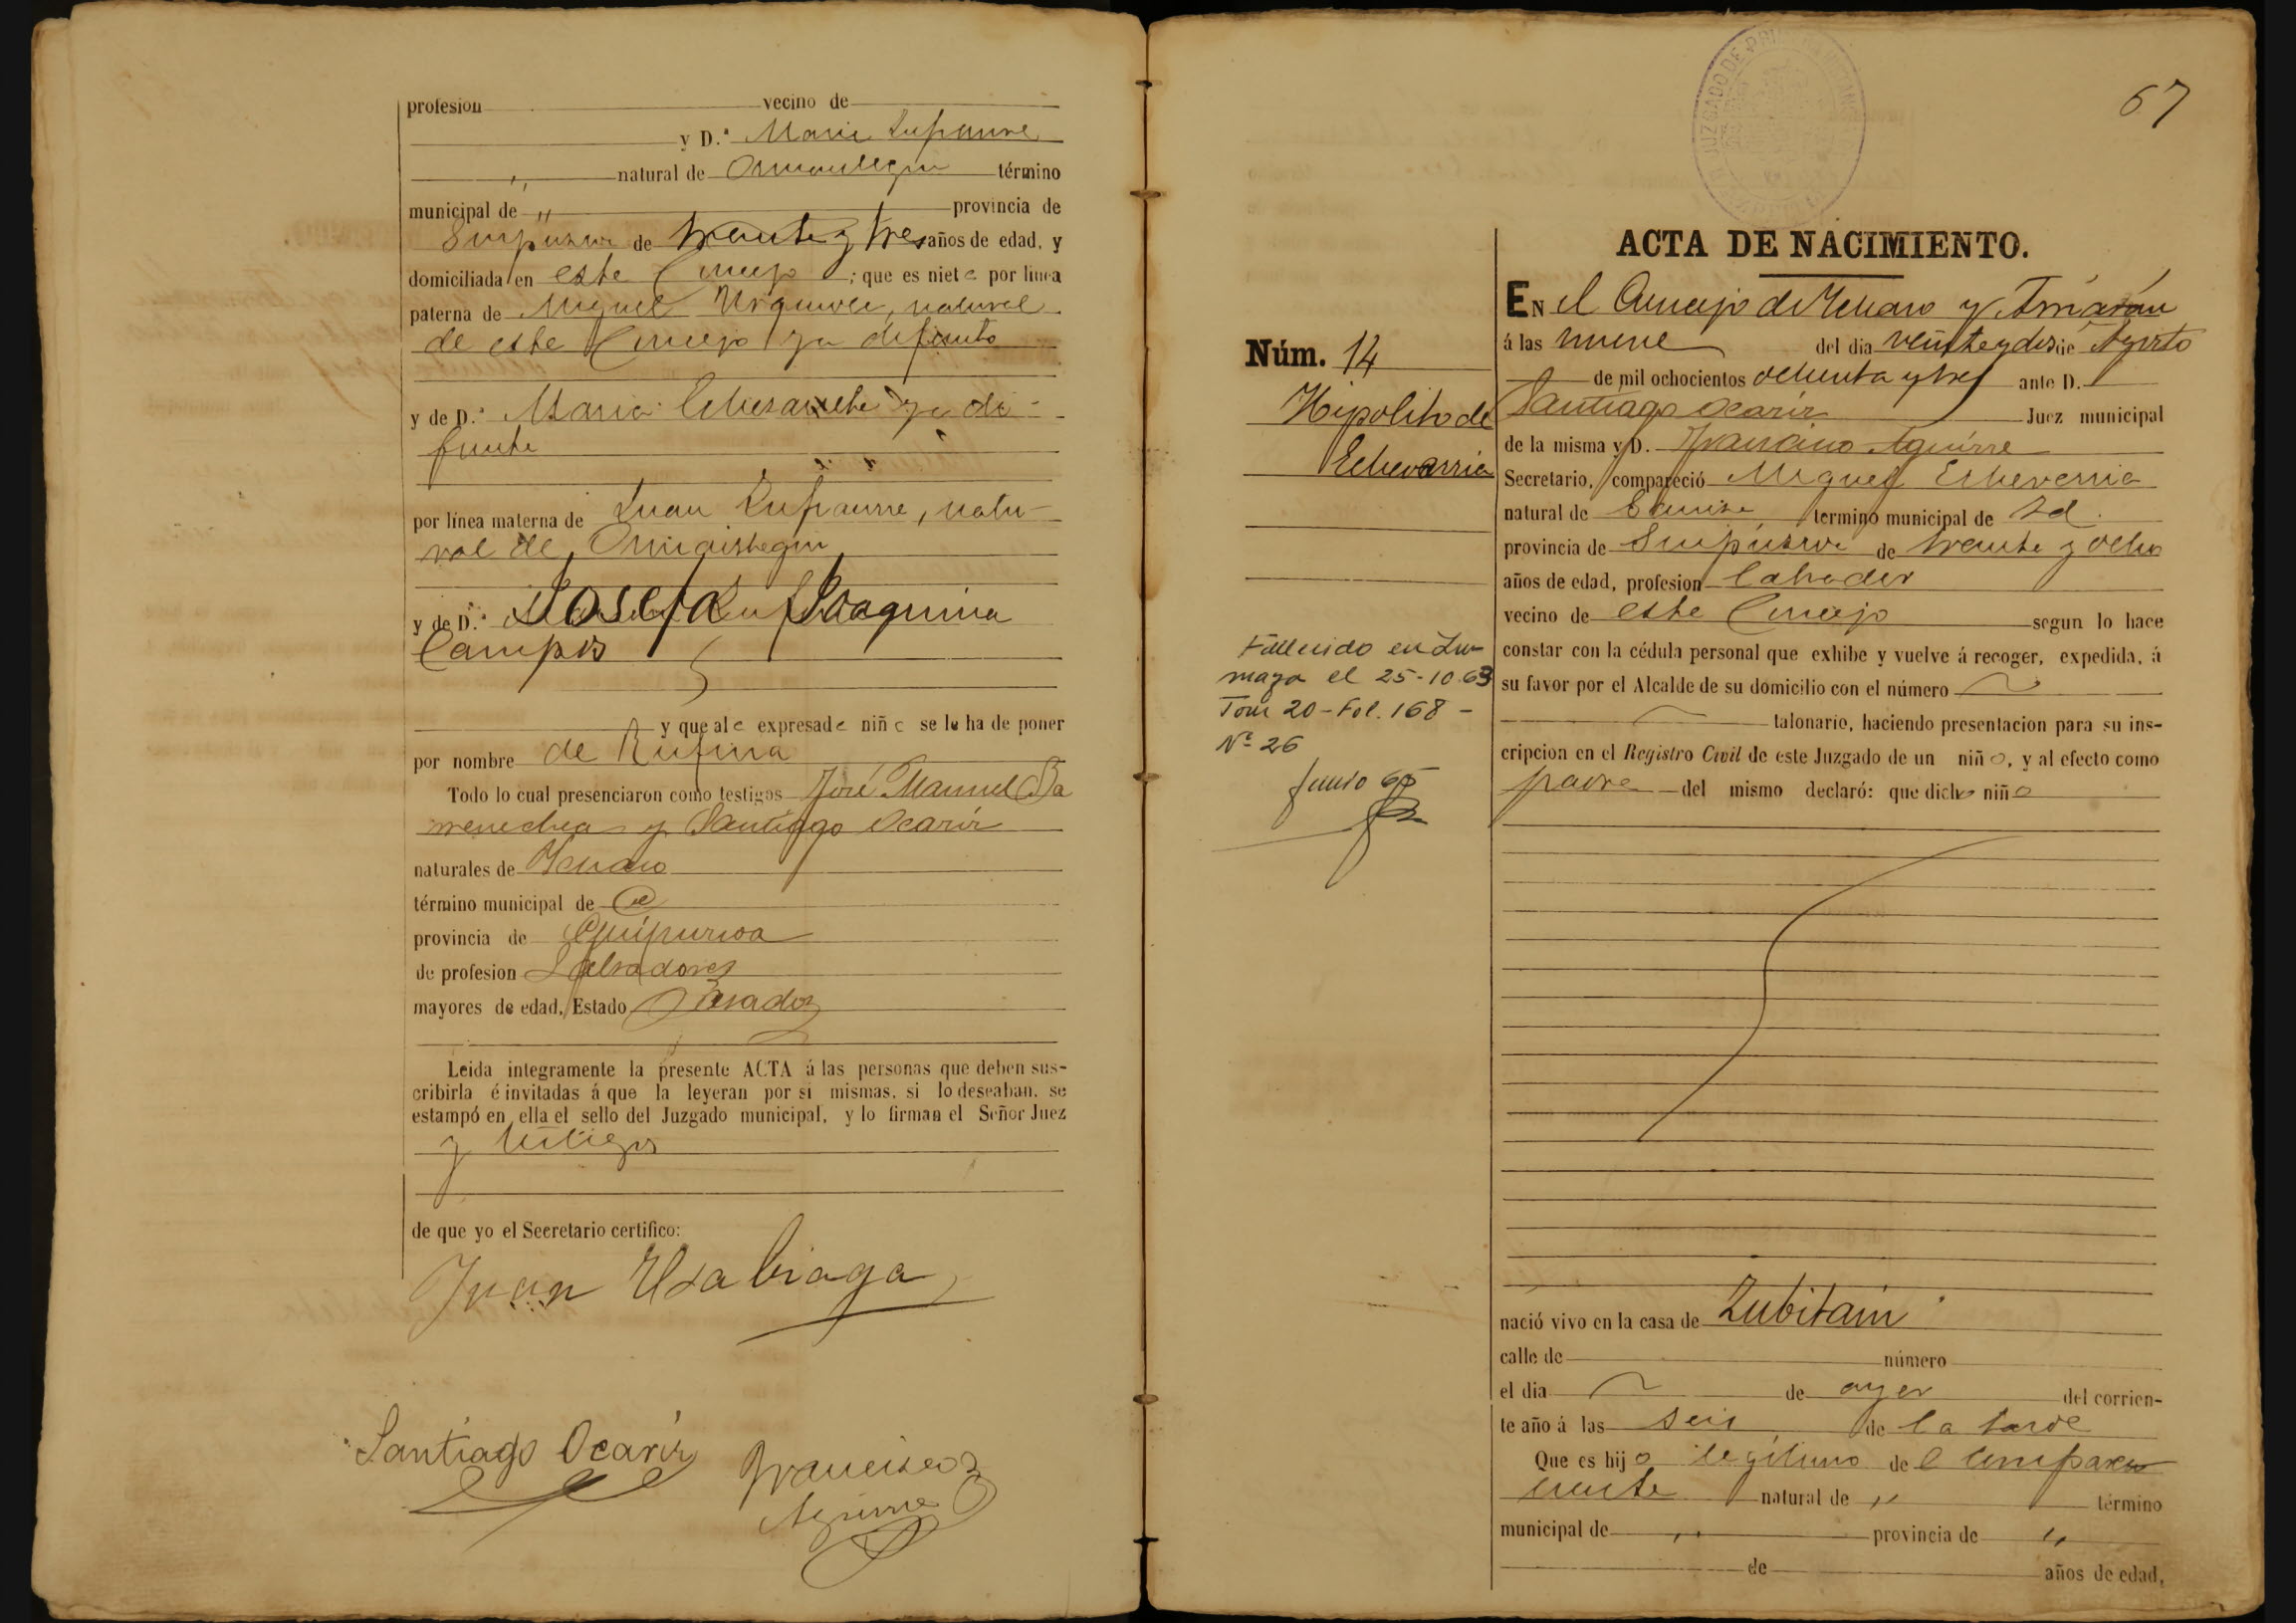 profesion vecino de
y D.ª Maria Lupaurre
" natural de Ormaiztegui término
municipal de " provincia de
Guipuzcoa de treinta y tres años de edad, y
domiciliada en este Concejo ; que es nieta por línea
paterna de Miguel, natural
de este Concejo ya difunto
y de D.ª Maria ya di-
funta
por línea materna de Juan, natu-
ral de Ormaiztegui
y de D.ª Josefa Joaquina
Campos
y que al a expresada niña se le ha de poner
por nombre de Rufina
Todo lo cual presenciaron como testigos José Manuel Ba
rrenechea y Santiago Ocariz
naturales de Ychaso
término municipal de
provincia de Guipuzcoa
de profesion Labradores
mayores de edad, Estado Casados
Leida integramente la presente ACTA á las personas que deben sus-
cribirla é invitadas á que la leyeran por sí mismas, si lo deseaban, se
estampó en ella el sello del Juzgado municipal, y lo firman el Señor Juez
y testigos
de que yo el Secretario certifico:
Juan Usabiaga
Santiago Ocariz
Francisco
Aguirre
67
ACTA DE NACIMIENTO.
EN el Concejo de Ychaso y Arriarán
Núm. 14
á las nueve del dia veinte y dos de Agosto
de mil ochocientos ochenta y tres ante D.
Hipolito de
Santiago Ocariz Juez municipal
de la misma y D. Francisco Aguirre
Echevarria
Secretario, compareció Miguel Echeverria
natural de término municipal de Id.
provincia de Guipuzcoa de treinta y ocho
años de edad, profesion labrador
vecino de este Concejo segun lo hace
constar con la cédula personal que exhibe y vuelve á recoger, expedida, á
su favor por el Alcalde de su domicilio con el número
talonario, haciendo presentacion para su ins-
cripcion en el Registro Civil de este Juzgado de un niño, y al efecto como
padre del mismo declaró: que dicho niño
Fallecido en Zu-
maya el 25-10-63
Tom 20 - Fol. 168 -
Nº 26
Junio 65
nació vivo en la casa de Zubitain
calle de número
el dia de ayer del corrien-
te año á las seis de la tarde
Que es hijo legitimo de el compare
ciente natural de " término
municipal de " provincia de "
de años de edad,